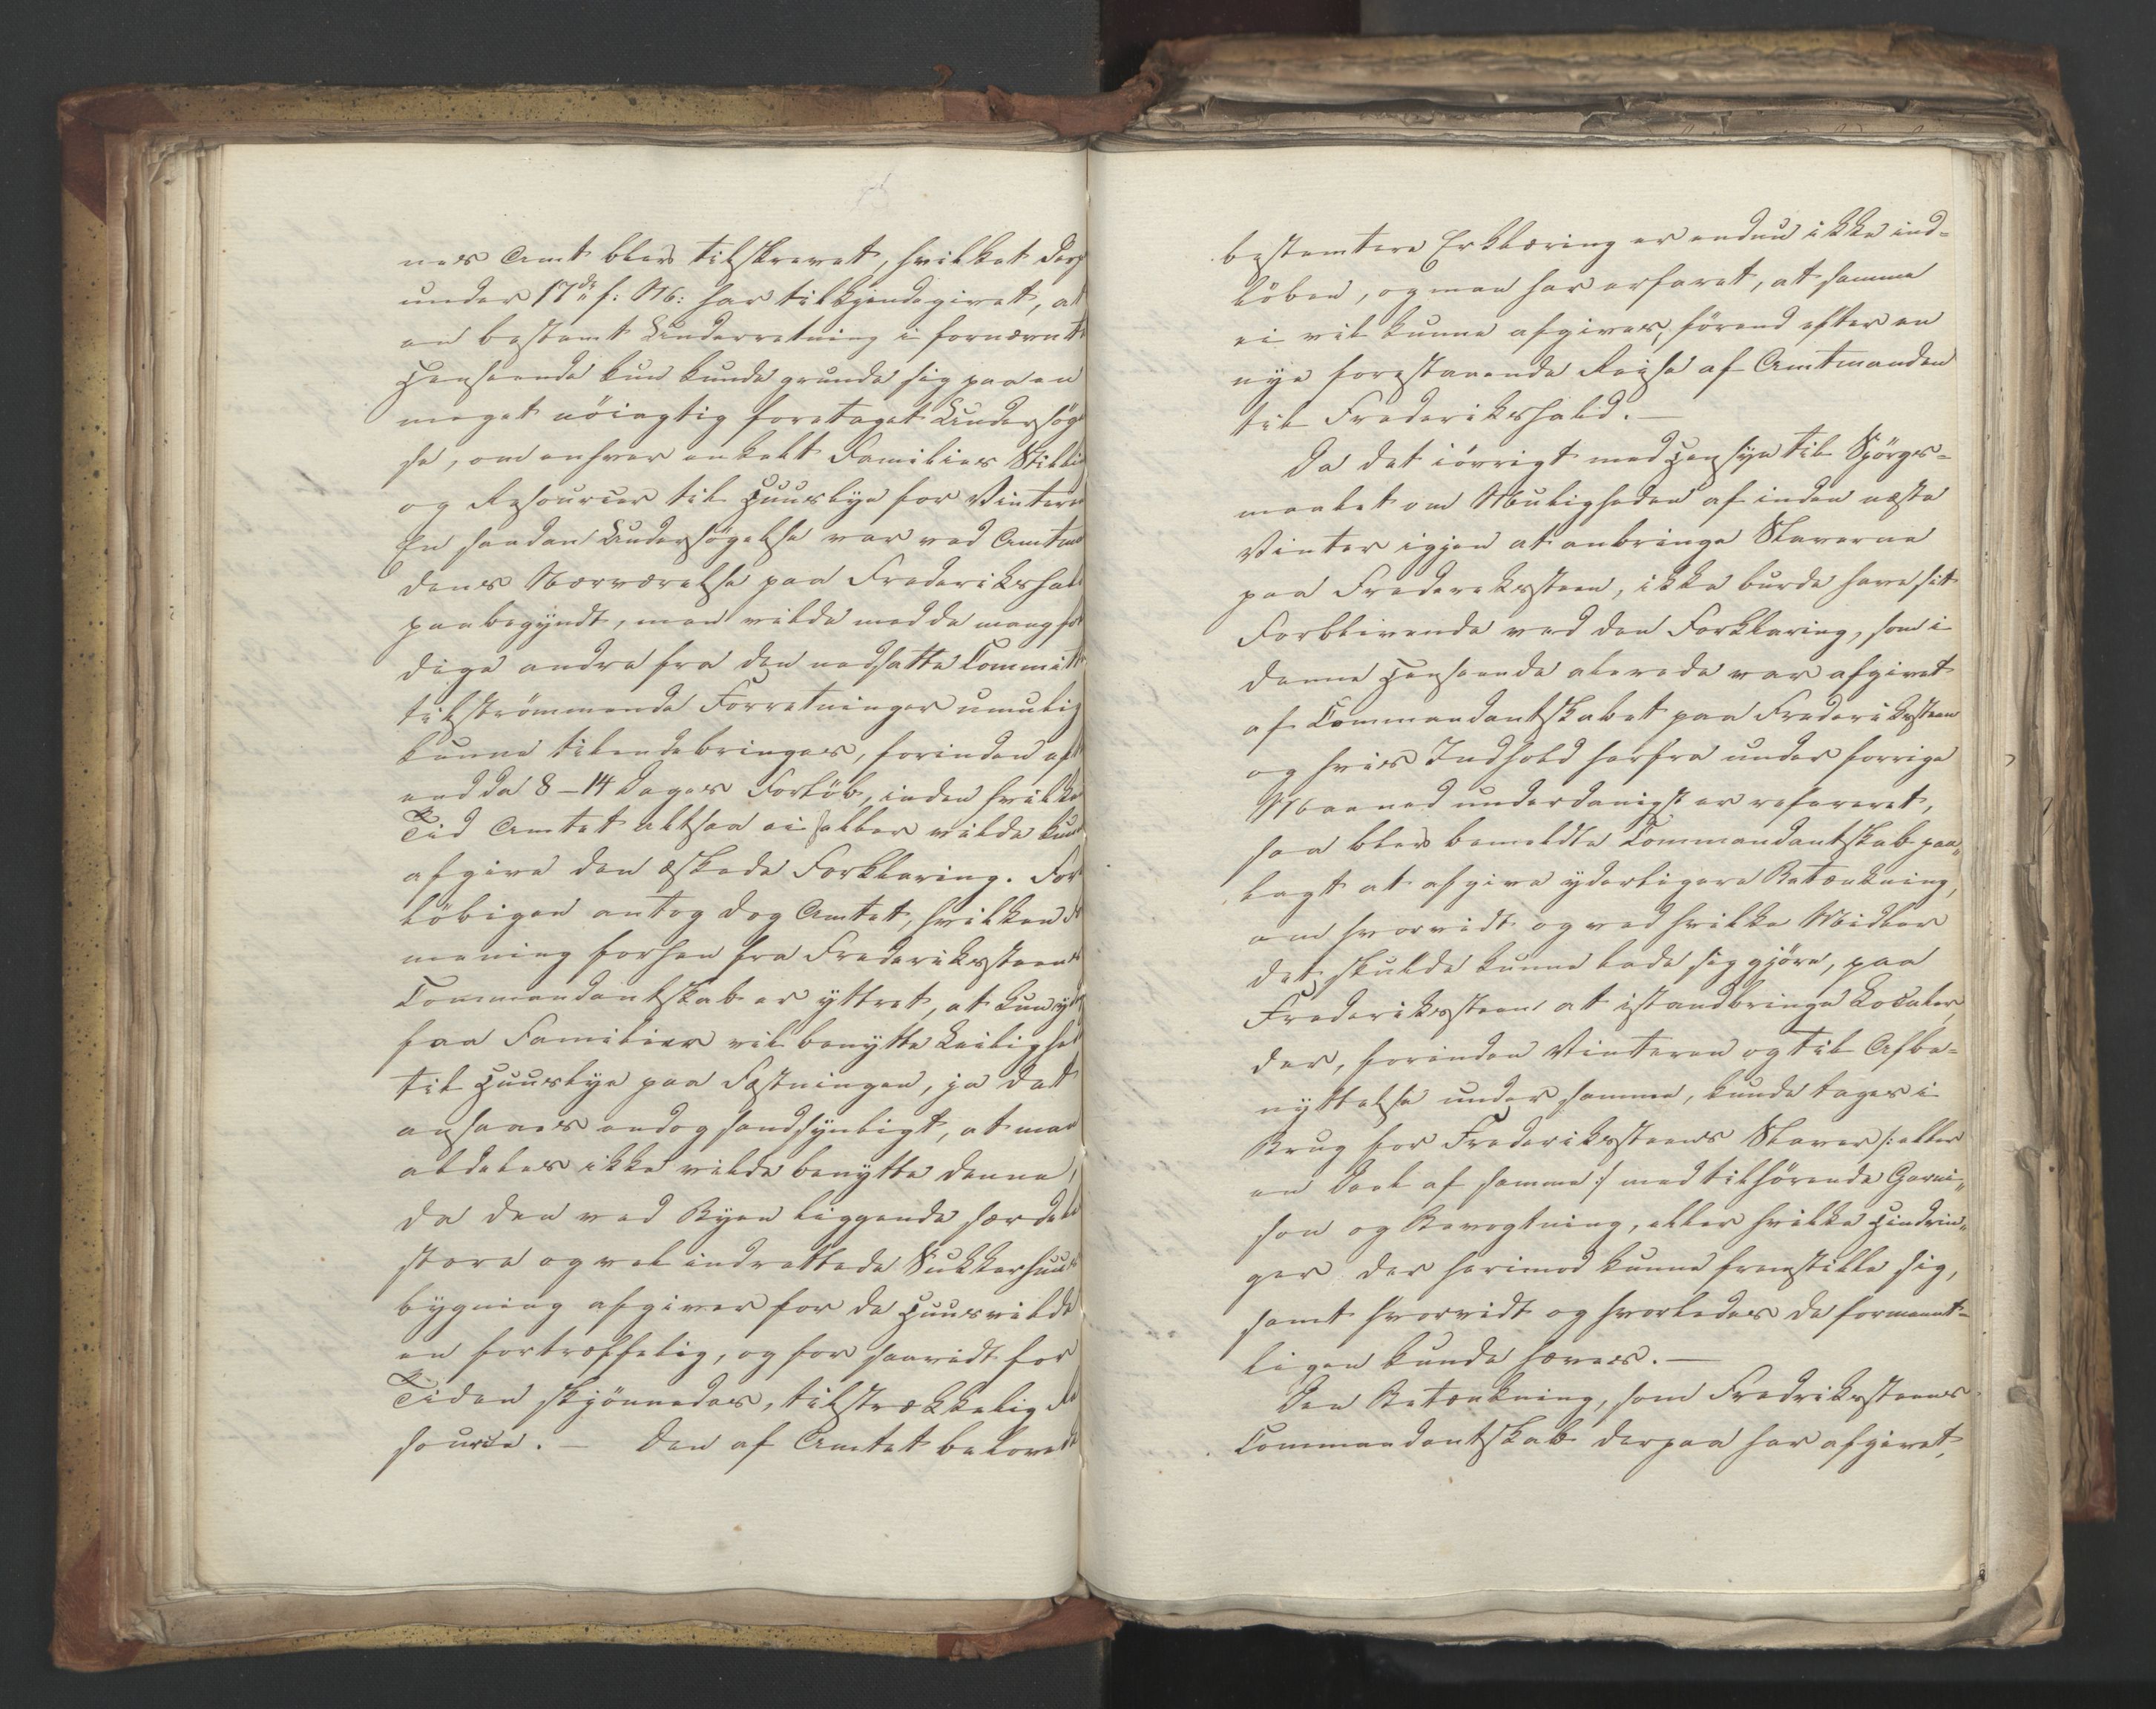 nes Amt blev tilskrevet, hvilket derp
under 17de f: M: har tilkjendegivet, at
en bestemt Underretning i fornævnte
Henseende kun kunde grunde sig paa en
meget nöiagtig foretaget Undersöge
se, om enhver enkelt Families Stilli
og Resourcer til Huuslye for Vinteren
En saadan Undersögelse var ved Amtma
dens Nærværelse paa Frederikshal
paabegyndt, men vilde med de mangfol
dige andre fra den nedsatte Committ
tilströmmende Forretninger umulig
kunne tilendebringes, forinden eft
endda 8 – 14 Dages Forlöb, inden hvilke
Tid Amtet altsaa ei heller vilde kun
afgive den æskede Forklaring. For
löbigen antog dog Amtet, hvilken
mening forhen fra Frederiksteens
Commandantskab er yttret, at kun
faa Familier vil benytte Leilighed
til Huuslye paa Fæstningen, ja det
ansaaes endog sandsynligt, at man
aldeles ikke vilde benytte denne,
da den ved Byen liggende særdele
store og vel indrettede Sukkerhuus
bygning afgiver for de Huusvilde
en fortræffelig, og for saavidt for
Tiden skjönnedes, tilstrækkelig Re
source. – Den af Amtet belovede
bestemtere Erklæring er endnu ikke ind-
löben, og man har erfaret, at samme
ei vil kunne afgives, förend efter en
nye forestaaende Reise af Amtmanden
til Frederikshald. –
Da det iövrigt med Hensyn til Spörgs-
maalet om Muligheden af inden næste
Vinter igjen at anbringe Slaverne
paa Frederiksteen, ikke burde have sit
Forblivende ved den Forklaring, som i
denne Henseende alerede var afgivet
af Commandantskabet paa Frederiksteen
og hvis Indhold herfra under forrige
Maaned underdanigst er refereret,
saa blev bemeldte Commandantskab paa„
lagt at afgive yderligere Betænkning,
om hvorvidt og ved hvilke Midler
det skulde kunne lade sig gjöre, paa
Frederiksteen at istandbringe Localer,
der, forinden Vinteren og til Afbe-
nyttelse under samme, kunde tages i
Brug for Frederiksteens Slaver /: eller
en Deel af samme :/ med tilhörende Garni„
son og Bevogtning, eller hvilke Hindrin„
ger der herimod kunne fremstille sig,
samt hvorvidt og hvorledes de formeent-
ligen kunde hæves. –
Den Betænkning, som Fredriksteens
Commandantskab derpaa har afgivet,